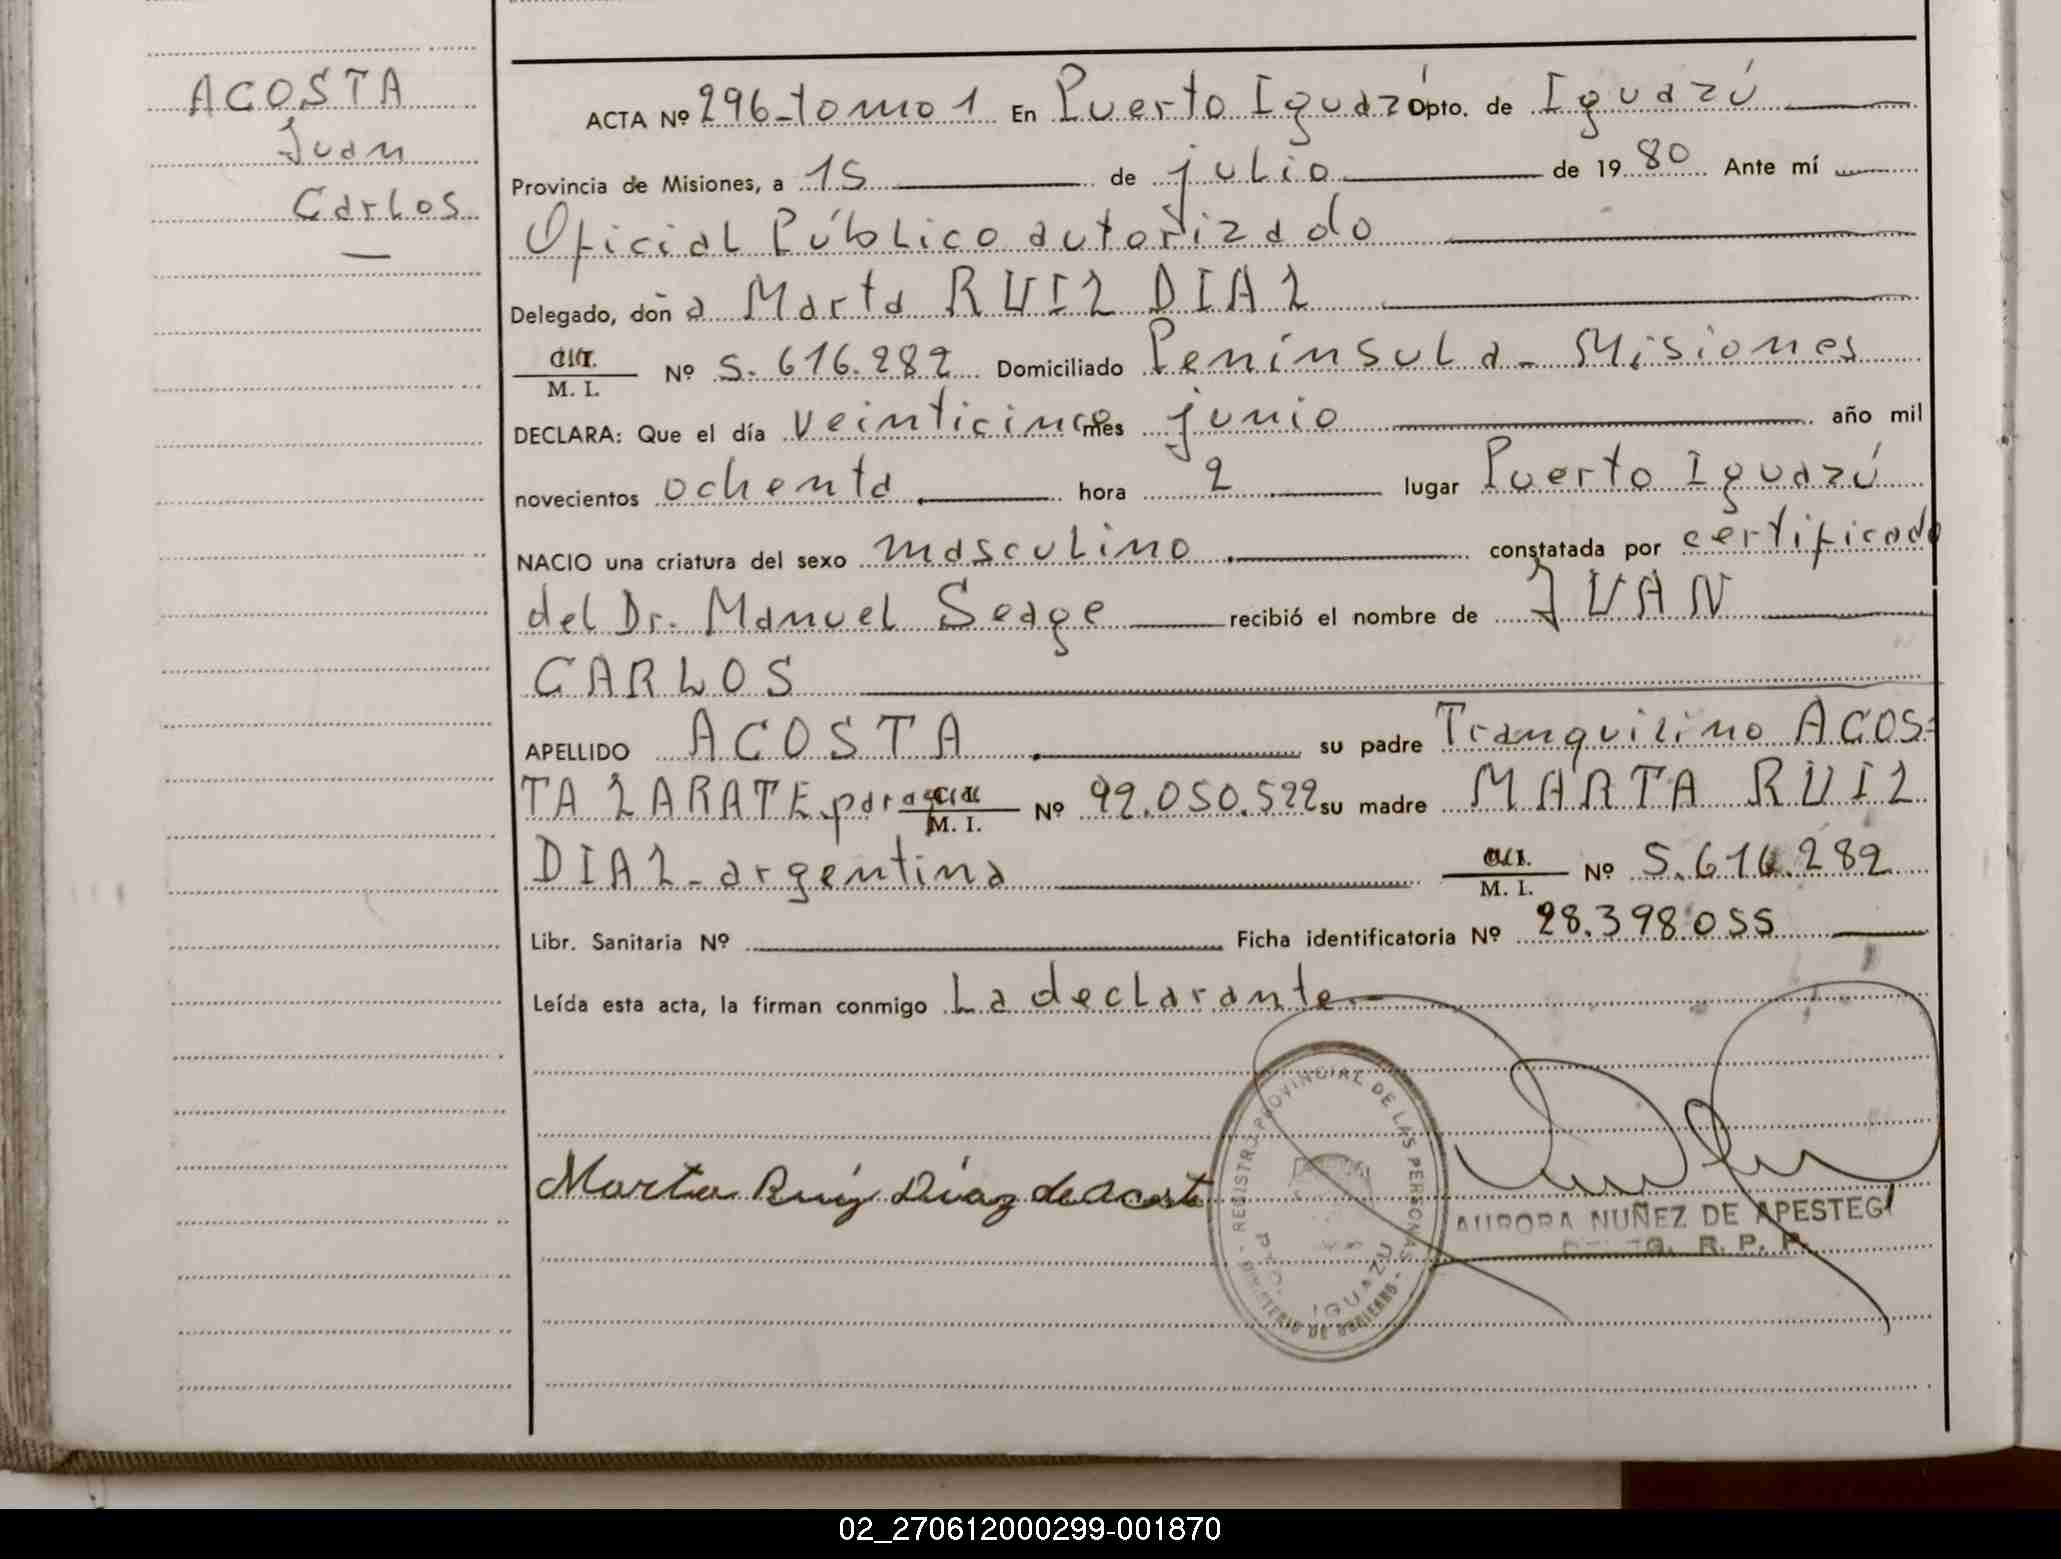 ACOSTA
Juan
Carlos
ACTA Nº 296-tomo 1 En Puerto Iguazú Dpto. de Iguazú
Provincia de Misiones, a 15 de julio de 1980 Ante mí
Oficial Público autorizado
Delegado, doña Marta RUIZ DIAZ
C.I.
M. I. Nº 5.616.282 Domiciliado Península - Misiones
DECLARA: Que el día veinticinco mes junio año mil
novecientos ochenta hora 2 lugar Puerto Iguazú
NACIO una criatura del sexo masculino constatada por certificado
del Dr. Manuel Seage recibió el nombre de JUAN
CARLOS
APELLIDO ACOSTA su padre Tranquilino ACOS=
TA ZARATE C.I. M. I. Nº 92.050.522 su madre MARTA RUIZ
DIAZ - argentina C.I. M. I. Nº 5.616.282
Libr. Sanitaria Nº Ficha identificatoria Nº 28.398.055
Leída esta acta, la firman conmigo La declarante.-
Marta Ruiz Díaz de Acosta
REGISTRO PROVINCIAL DE LAS PERSONAS
MINISTERIO DE GOBIERNO
IGUAZU
AURORA NUÑEZ DE APESTEGI
R. P. P.
02_270612000299-001870